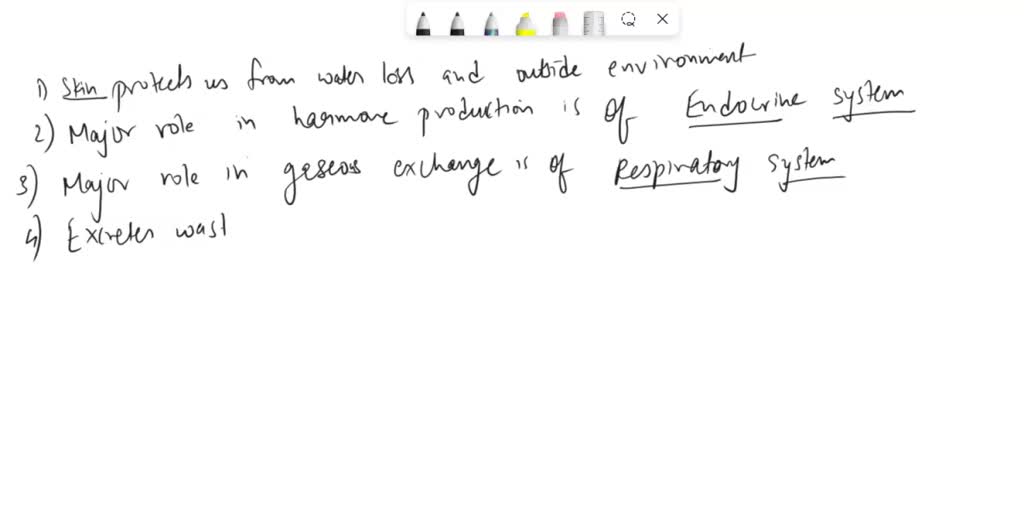 1) Skin protects us from water loss and outside environment
2) Major role in harmone production is of Endocrine system
3) Major role in geseos exchange is of Respiratory system
4) Excretes wast